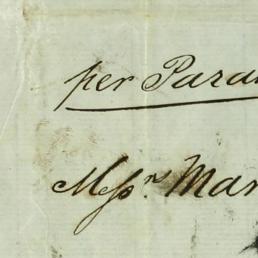 per Para
Messrs Mar